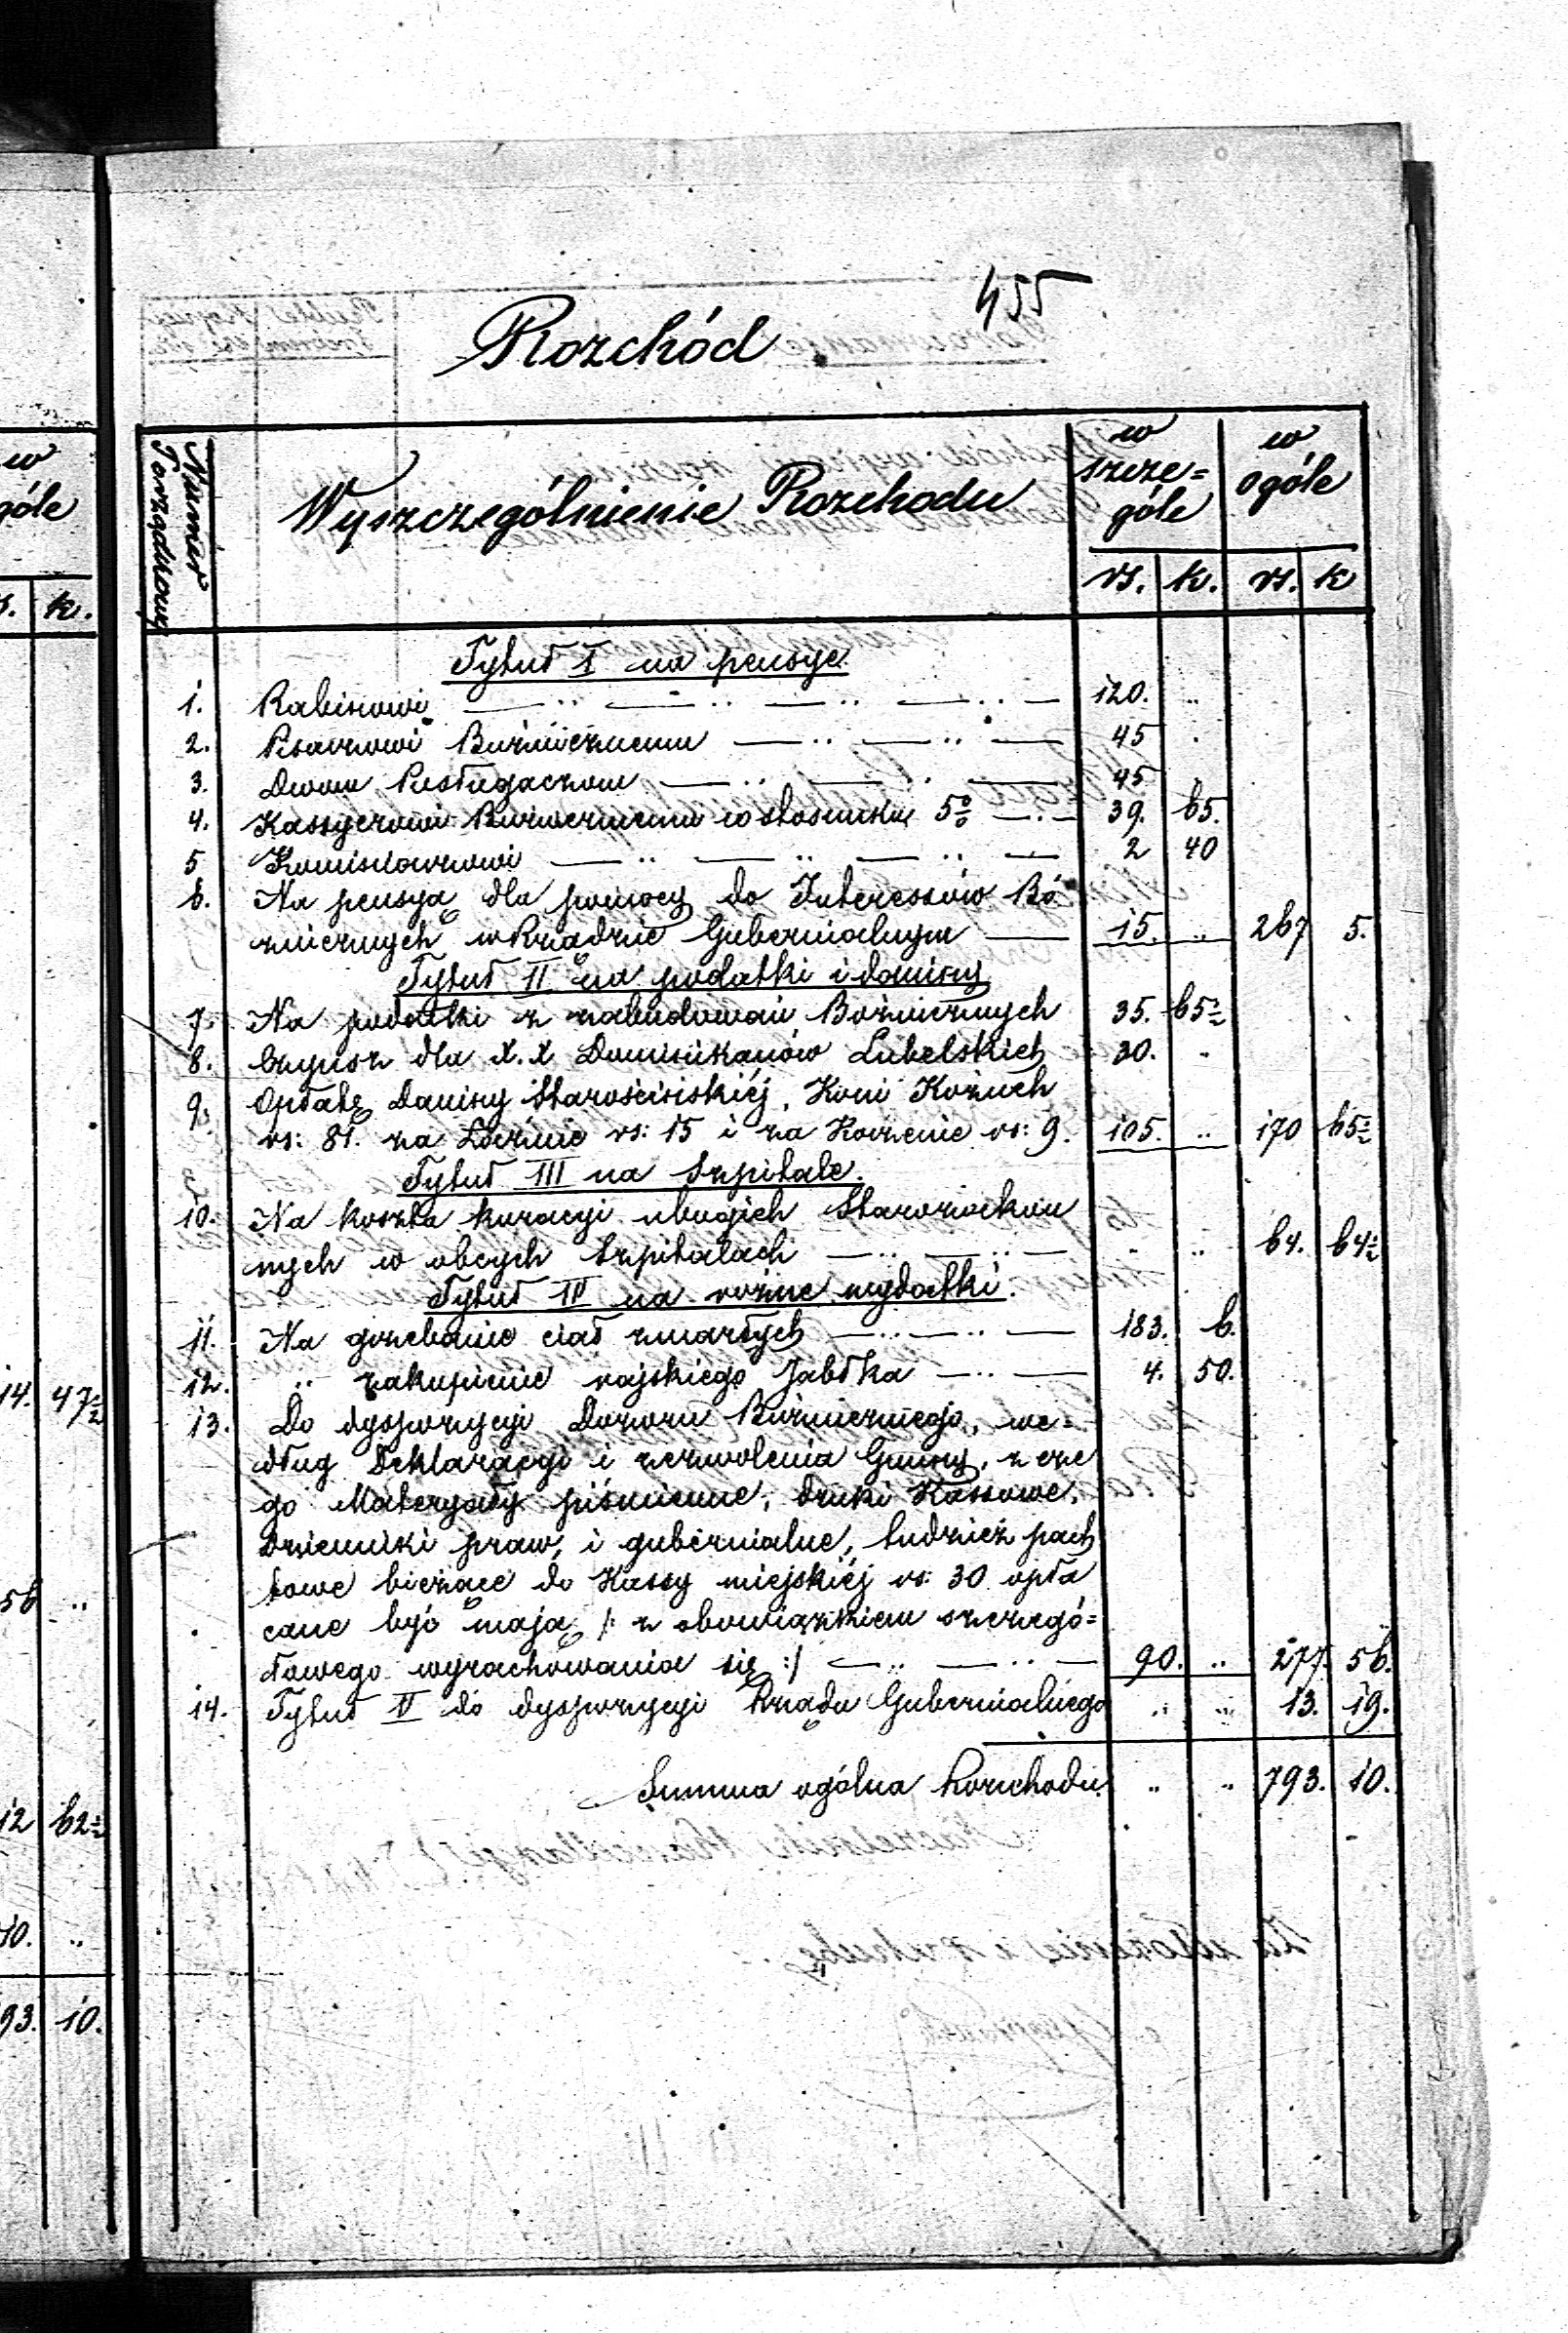 455
Rozchód
Numer Porządkowy
Wyszczególnienie Rozchodu
w szcze=
góle
w
ogóle
rs. k. rs. k
Tytuł I na pensye
1. Rabinowi 120. ..
2. Pisarzowi Bużnicznemu 45
3. Dwom Posługaczom 45
4. Kassyerowi Bużnicznemu w stosunku 5% 39. 65.
5 Kominiarzowi 2 40
6. Na pensyą dla pomocy do Interessów Bó
żnicznych w Rządzie Gubernialnym 15. .. 267 5.
Tytuł II na podatki i daniny
7. Na podatki z zabudowań Bożnicznych 35. 65½
8. Czynsz dla X.X Dominikanów Lubelskich 30.
9. Opłatę Daniny Starościńskiéj, Koni Kożuch
rs: 81. za Łoźnie rs: 15 i za Korzenie rs: 9. 105. .. 170 65½
Tytuł III na Szpitale.
10. Na koszta kuracyi ubogich Starozakon
nych w obcych Szpitalach .. 64. 64½
Tytuł IV na różne wydatki.
11. Na grzebanie ciał zmarłych 183. 6.
12. " zakupienie rajskiego Jabłka 4. 50.
13. Do dyspozycyi Dozoru Bużnicznego, we=
dług Deklaracyi i zezwolenia Gminy, z cze
go Materyały piśmienne, druki Kassowe,
Dzienniki praw, i gubernialne, tudzież pach
towe bieżące do Kassy miejskiéj rs: 30 opła
cane być mają /: z obowiązkiem szczegó=
łowego wyrachowania się :/ 90. .. 277. 56.
14. Tytuł V do dyspozycyi Rządu Gubernialnego .. .. 13. 19.
Summa ogólna Rozchodu .. .. 793. 10.
w
góle
k.
14. 47½
56 ..
12 62½
10. ..
93. 10.